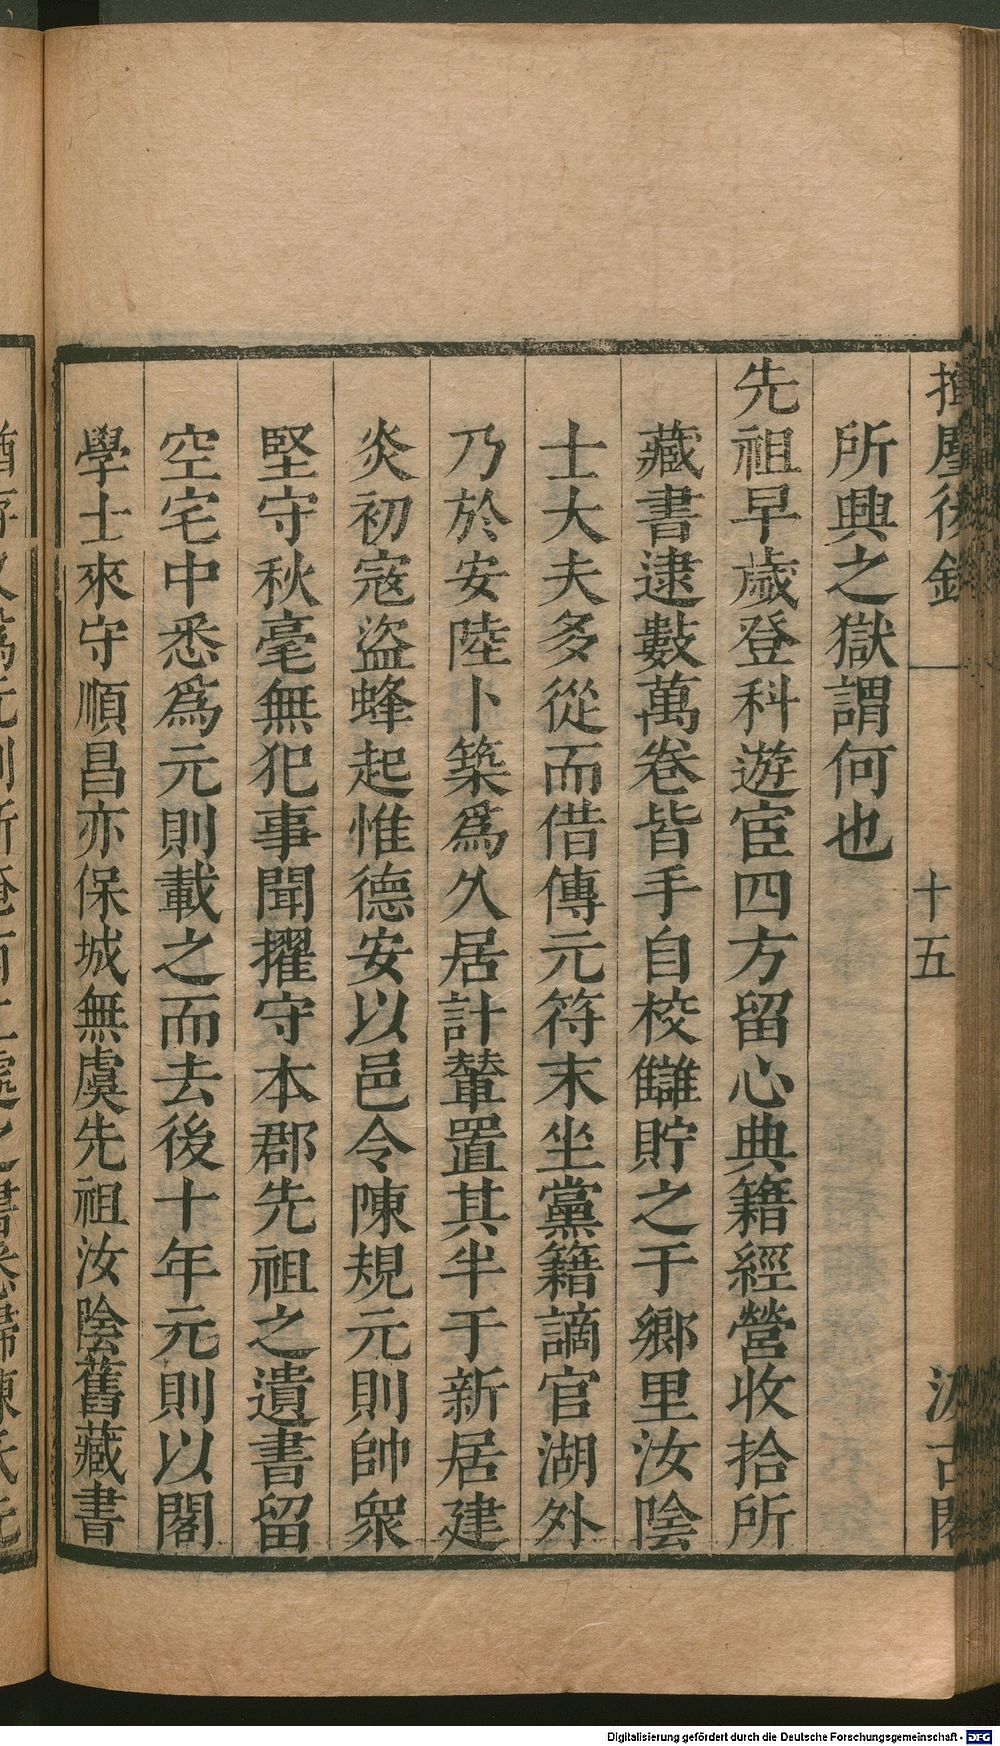 揮麈後錄
十五
汲古閣
所興之獄謂何也
先祖早歲登科遊宦四方留心典籍經營收拾所
藏書逮數萬卷皆手自校讎貯之于鄉里汝陰
士大夫多從而借傳元符末坐黨籍謫官湖外
乃於安陸卜築爲久居計輦置其半于新居建
炎初寇盜蜂起惟德安以邑令陳規元則帥衆
堅守秋毫無犯事聞擢守本郡先祖之遺書留
空宅中悉爲元則載之而去後十年元則以閣
學士來守順昌亦保城無虞先祖汝陰舊藏書
Digitalisierung gefördert durch die Deutsche Forschungsgemeinschaft - DFG